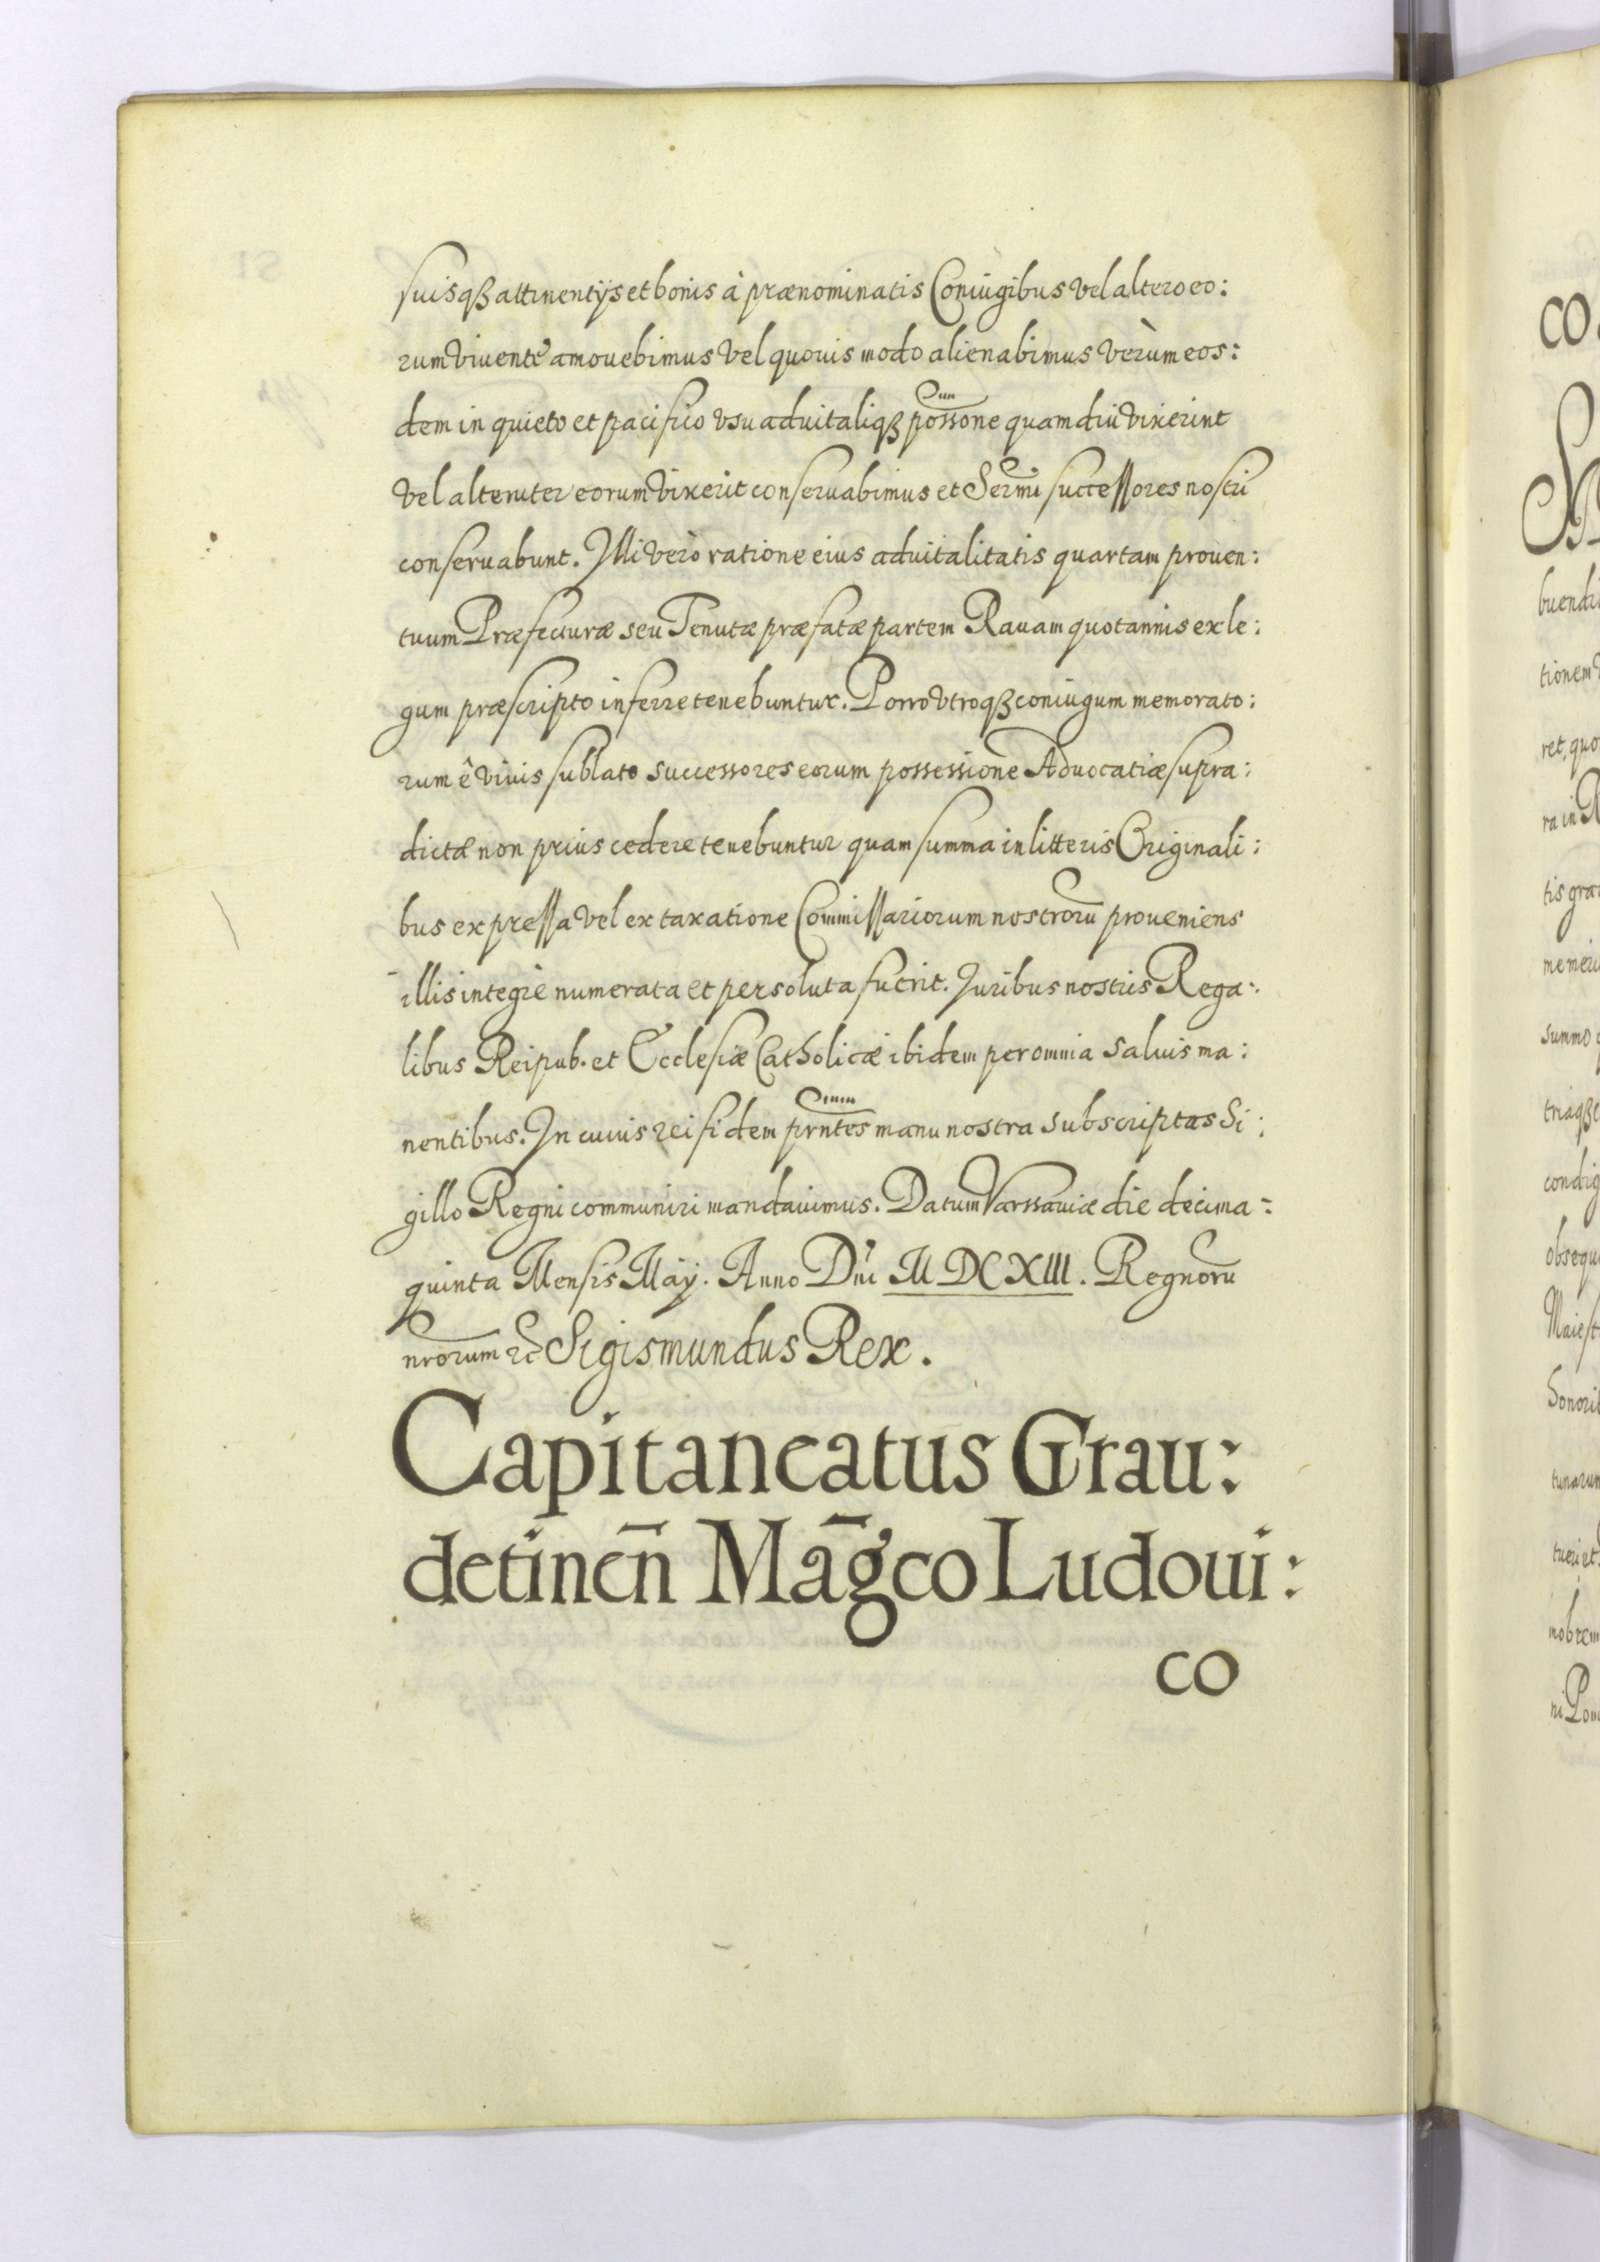 suisqȝ attinentijs et bonis à prænominatis Coniugibus vel altero eo:
rum viuente amouebimus vel quouis modo alienabimus verùm eos:
dem in quieto et pacifico vsu aduitaliqȝ possone quamdiu vixerint
vel alteruter eorum vixerit conseruabimus et Sermi successores nostri
conseruabunt. Illi verò ratione eius aduitalitatis quartam prouen:
tuum Præfecturæ seu Tenutæ præfatæ partem Rauam quotannis ex le:
gum præscripto inferre tenebuntur. Porro vtroqȝ coniugum memorato:
rum ê viuis sublato successores eorum possessione Aduocatiæ supra:
dictæ non prius cedere tenebuntur quam summa in litteris Originali:
bus expressa vel ex taxatione Commissariorum nostroru proueniens
illis integrè numerata et persoluta fuerit. Juribus nostris Rega:
libus Reipub. et Ecclesiæ Catholicæ ibidem per omnia saluis ma:
nentibus. In cuius rei fidem prntes manu nostra subscriptas Si:
gillo Regni communiri mandauimus. Datum Varssauiæ die decima:
quinta Mensis Maij. Anno Dni M DC XIII. Regnoru
nrorum etc Sigismundus Rex.
Capitaneatus Grau:
detinen̄ Māgco Ludoui:
co
co
buendi
tionem
ret, quo
ra in
tis gra
summo
condig
obsequ
Maiest
honori
tunarum
tueri et